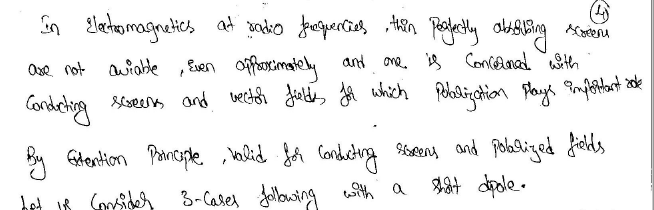 4
In Electromagnetics at radio frequencies, thin perfectly absorbing screens
are not aviable, Even approximately and one is Concerned with
Conducting screens and vector fields for which Polarization plays important role
By Extention Principle, valid for Conducting screens and polarized fields
Let us Consider 3-Cases following with a short dipole.